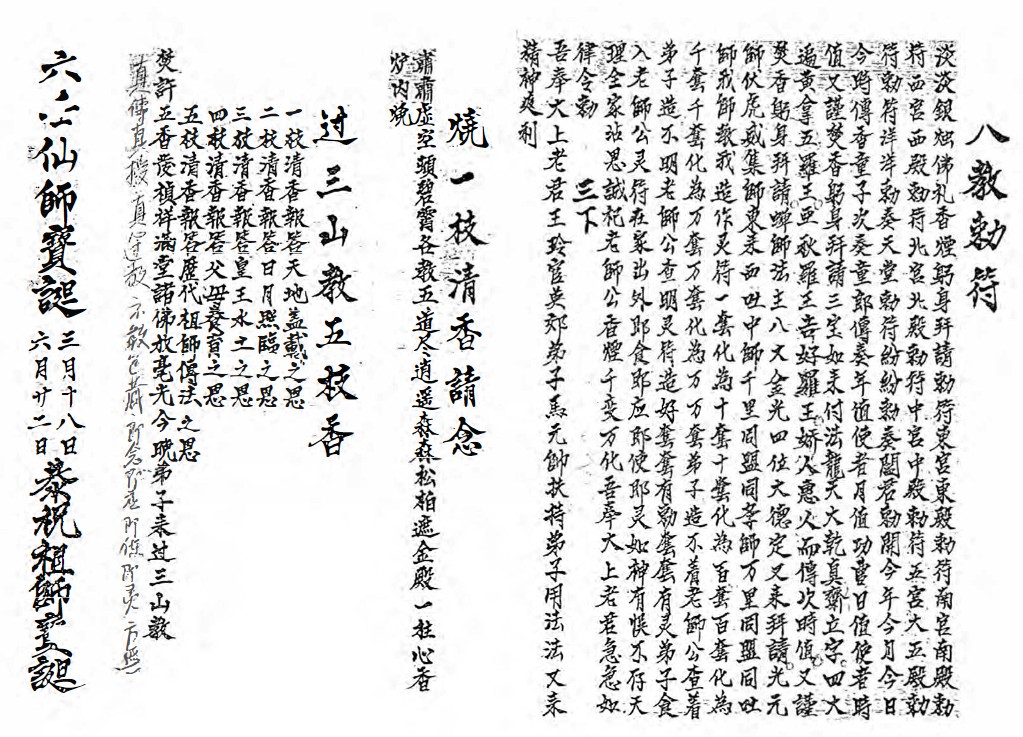 八教勅符
淡淡銀燭佛礼香煙躬身拜請勅符東宮東殿勅符南宮南殿勅
符西宮西殿勅符北宮北殿勅符中宮中殿勅符五宮大五殿勅
符勅符洋洋勅奏天堂勅符紛紛勅奏閻君勅開今年今月今日
今時傳香童子次奏童郎傳奏年值使者月值功曹日值使者時
值又謹焚香躬身拜請三宝如來付法龍天大乾真齋立字四大
遍黄拿五羅王亜秋羅王吉好羅王嬌人惠人而傳次時值又謹
焚香躬身拜請蟬師法主八丈金光四位大德定又来拜請光元
師伏虎威集師東来西吐中師千里同盟同孝師万里同盟同吐
師我師教我造作灵符一套化為十套十套化為百套百套化為
千套千套化為万套万套化為万万套弟子造不着老師公查着
弟子造不明老師公查明灵符造好套套有勅套套有灵弟子食
入老師公灵符在家出外即食即应即使即灵如神有悞不存天
理全家沾恩誠祀老師公香煙千变万化吾奉大上老君急急如
律令勅　三下
吾奉大上老君王玲官英郊弟子馬元帥扶持弟子用法法又来
精神爽利
燒一枝清香請念
肅肅虛空頭碧霄各教五道尽逍遥森森松柏遮金殿一柱心香
炉内燒
过三山教五枝香
一枝清香報答天地盖載之恩
二枝清香報答日月照臨之恩
三枝清香報答皇王水土之恩
四枝清香報答父母養育之恩
五枝清香報答歷代祖師傳法之恩
焚許五香發禎祥滿堂諸佛放毫光今晚弟子来过三山教
真傳真授真
六山仙師寶誕
三月十八日
六月廿二日
恭祝祖師寶誕